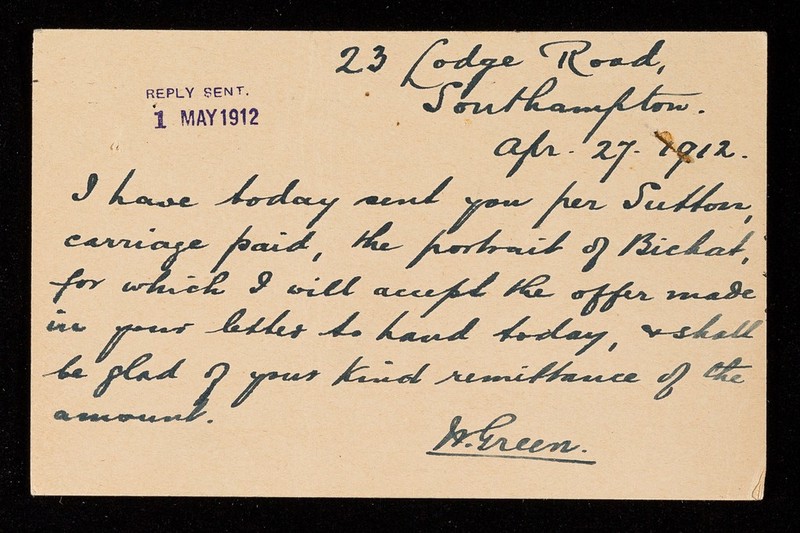 23 Lodge Road,
Southampton.
REPLY SENT.
1 MAY 1912
Apr. 27. 1912.
I have today sent you per Sutton,
carriage paid, the portrait of Bichat,
for which I will accept the offer made
in your letter to hand today, & shall
be glad of your kind remittance of the
amount.
W. Green.